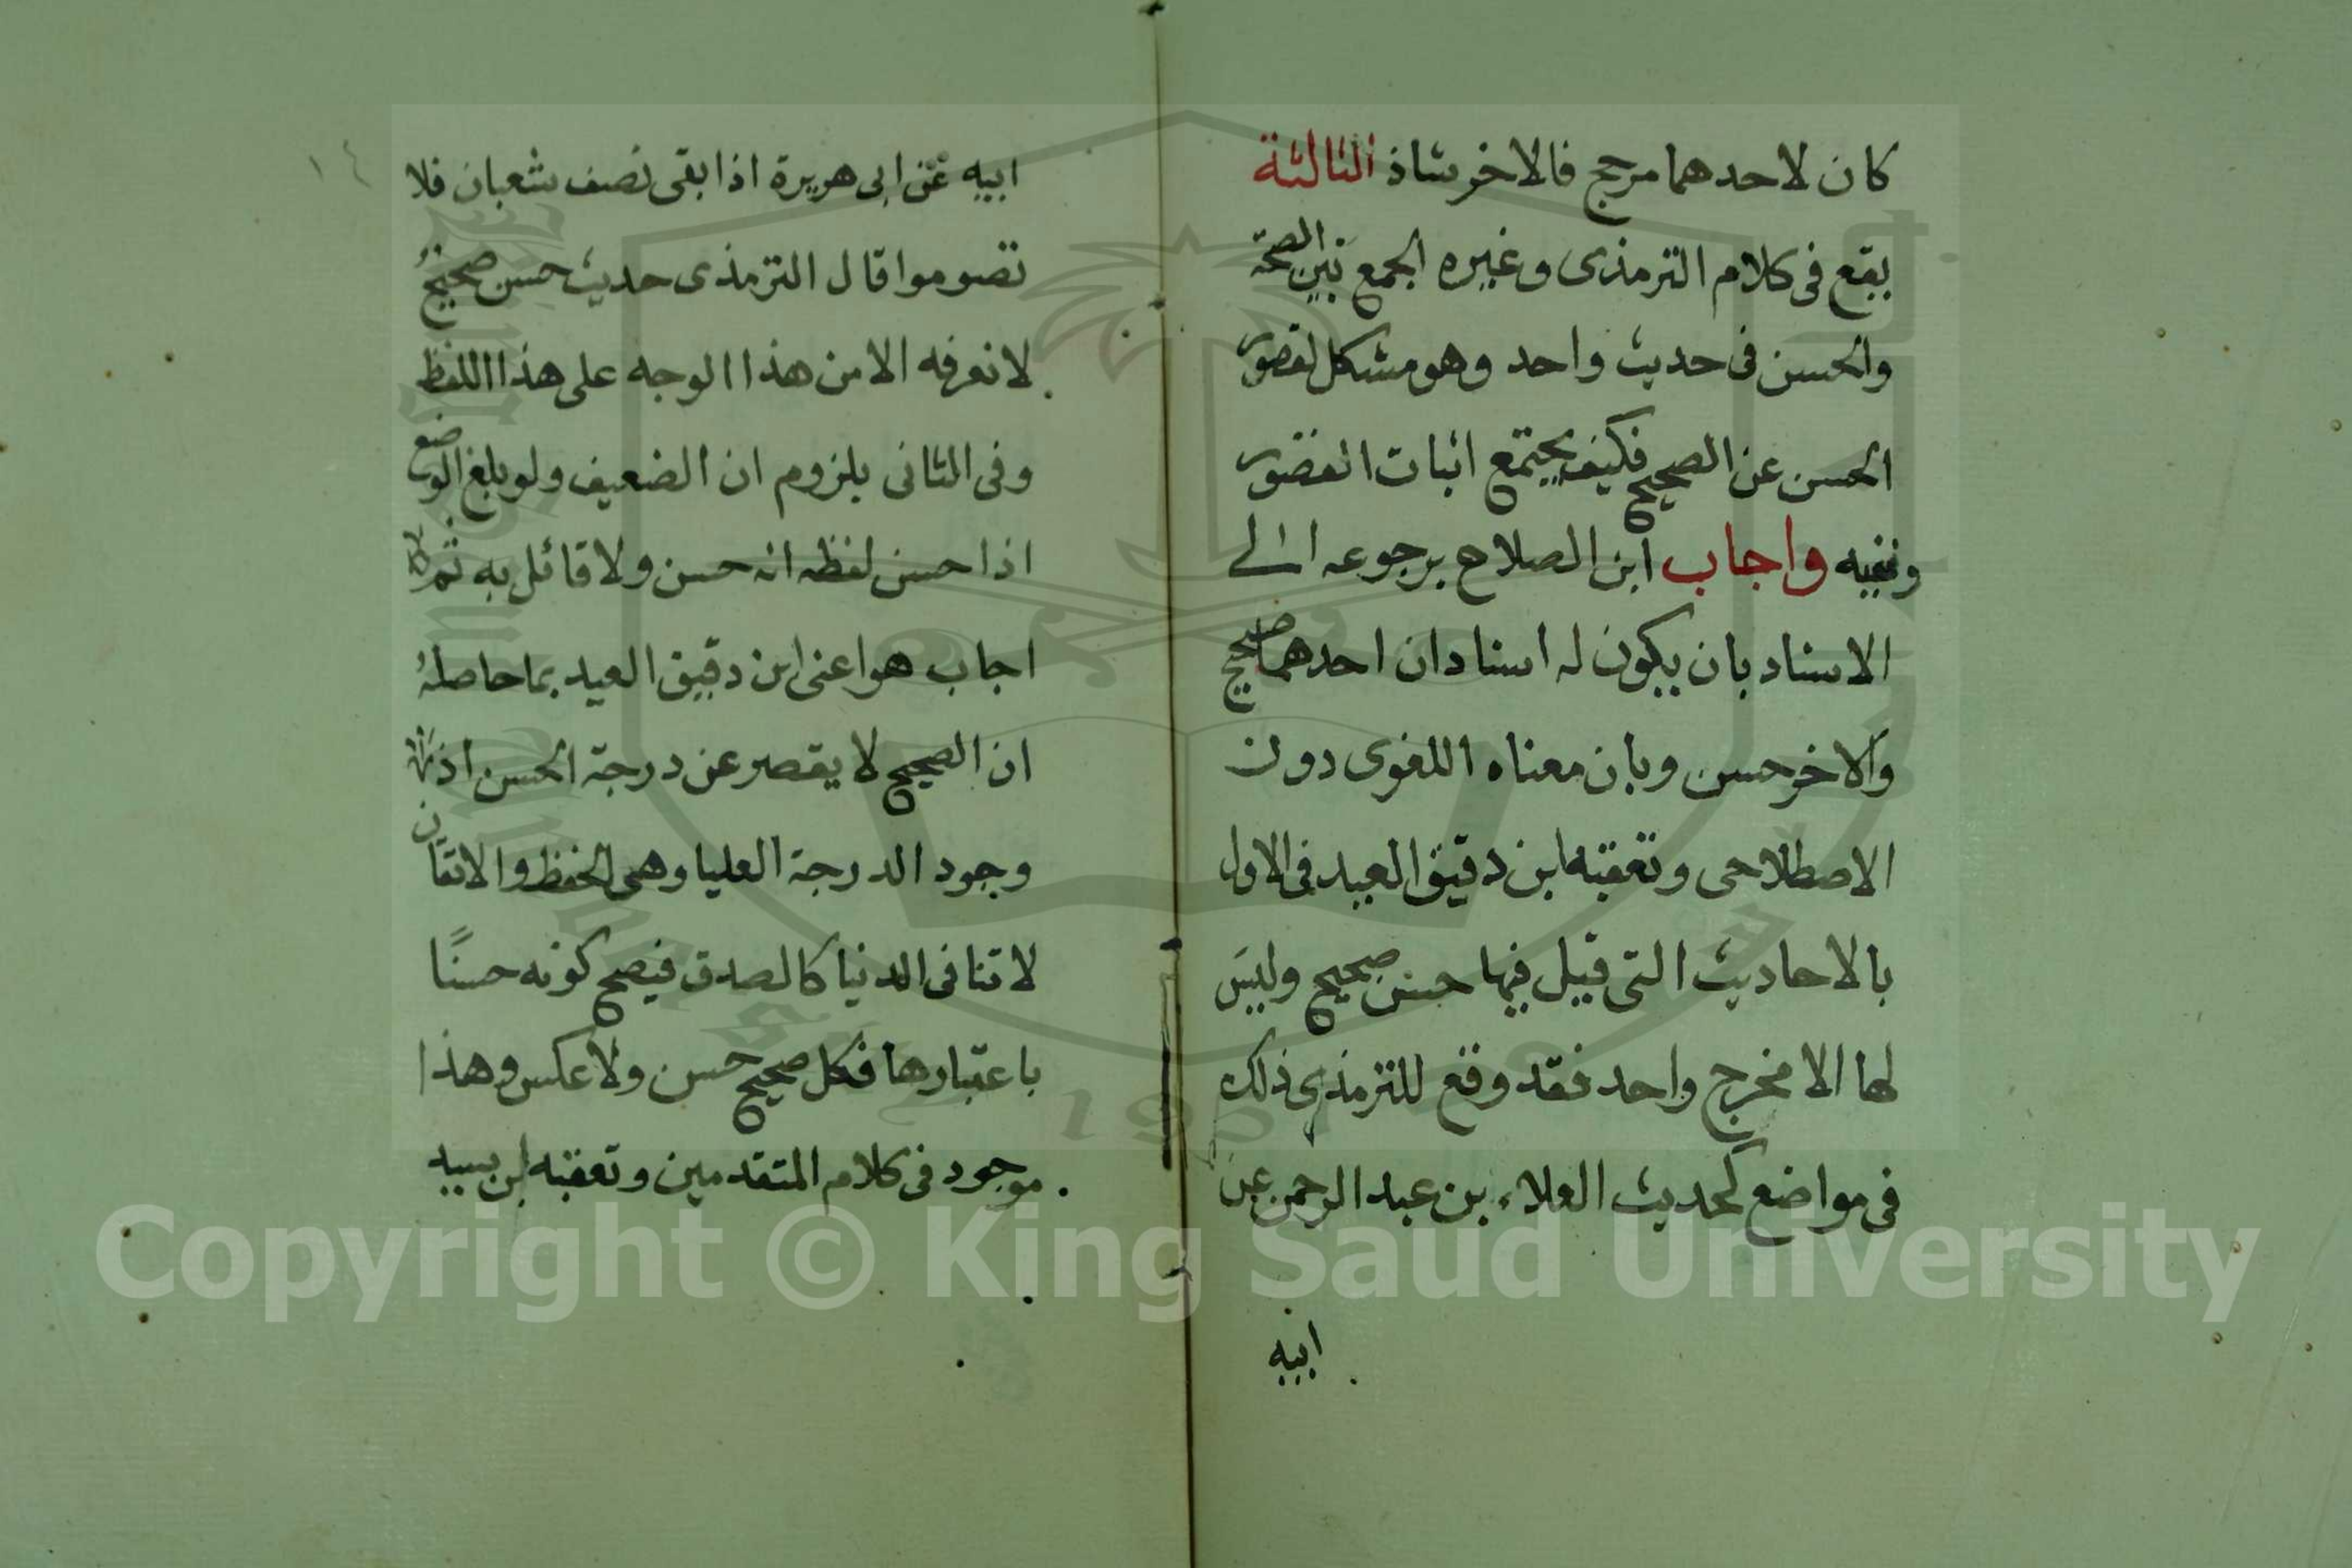 كان لاحدهما مرجح فالاخر شاذ الثالثة
يقع فى كلام الترمذى وغيره الجمع بين الصحة
والحسن فى حديث واحد وهو مشكل لقصور
الحسن عن الصحيح فكيف يجتمع اثبات القصور
ونفيه واجاب ابن الصلاح برجوعه الى
الاسناد بان يكون له اسنادان احدهما صحيح
والاخر حسن وبان معناه اللغوى دون
الاصطلاحى وتعقبه ابن دقيق العيد فى الاول
بالاحاديث التى قيل فيها حسن صحيح وليس
لها الا مخرج واحد فقد وقع للترمذى ذلك
فى مواضع كحديث العلاء بن عبد الرحمن عن
ابيه
١٤
ابيه عن ابى هريرة اذا بقى نصف شعبان فلا
تصوموا قال الترمذى حديث حسن صحيح
لا نعرفه الا من هذا الوجه على هذا اللفظ
وفى الثانى يلزوم ان الضعيف ولو بلغ الوضع
اذا حسن لفظه انه حسن ولا قائل به ثم
اجاب هو اعنى ابن دقيق العيد بما حاصله
ان الصحيح لا يقصر عن درجة الحسن اذ
وجود الدرجة العليا وهى الحفظ والاتقان
لا تنافى الدنيا كالصدق فيصح كونه حسنًا
باعتبارها فكل صحيح حسن ولا عكس وهذا
موجود فى كلام المتقدمين وتعقبه ابن
Copyright © King Saud University
195